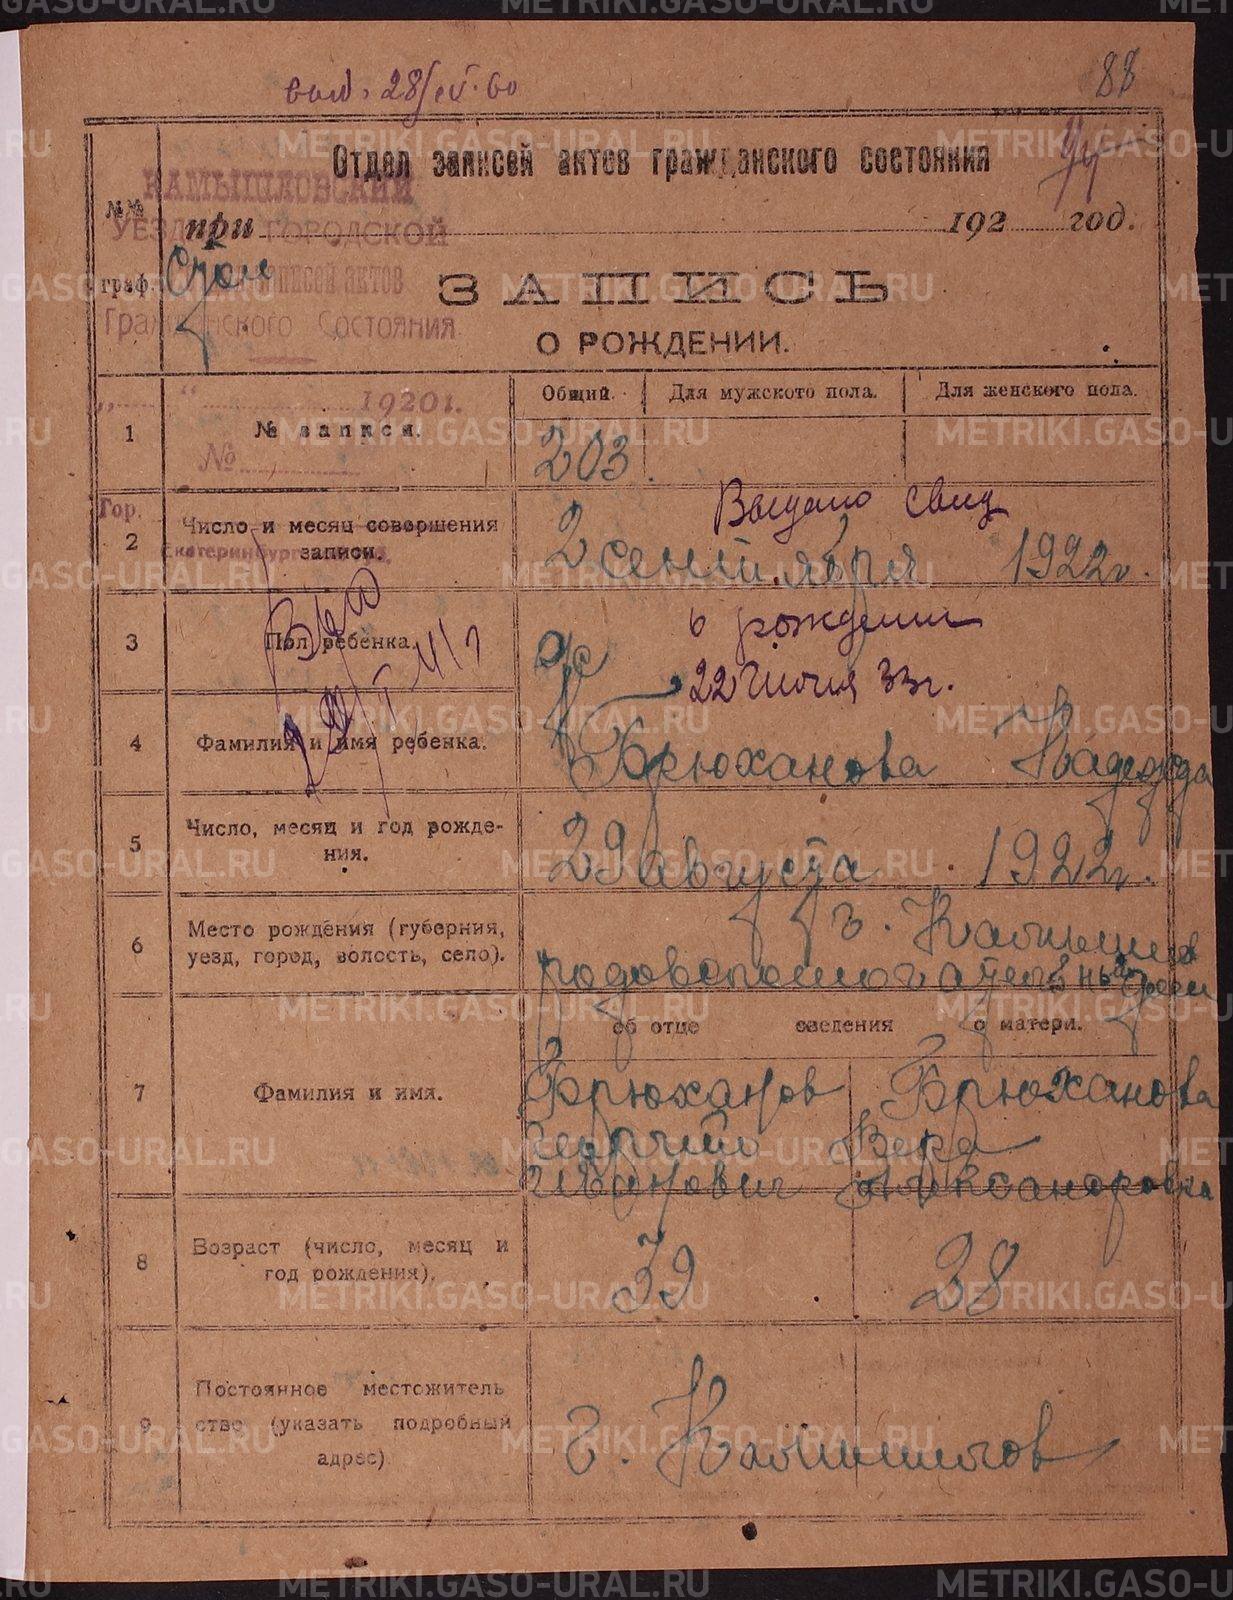 88
Отдел записей актов гражданского состояния
94
КАМЫШЛОВСКИЙ
№№
УЕЗД ГОРОДСКОЙ
при 192 год.
граф.
записей актов
ЗАПИСЬ
Гражданского Состояния
О РОЖДЕНИИ.
Общий.
Для мужского пола.
Для женского пола.
„ “ 1920 г.
1
№ записи.
203.
№
Гор.
Выдано свид
2
Число и месяц совершения записи.
2 сентября 1922 г.
Екатеринбург
3
Пол ребенка.
ж
о рождении
22 июня 33 г.
4
Фамилия и имя ребенка.
Брюханова Надежда
5
Число, месяц и год рожде-
ния.
29 августа 1922 г.
6
Место рождения (губерния,
уезд, город, волость, село).
г. Камышлов
родовспомогательный
об отце сведения о матери.
7
Фамилия и имя.
Брюханов
Георгий
Иванович
Брюханова
Вера
Александровна
8
Возраст (число, месяц и
год рождения).
39
38
9
Постоянное местожитель
ство (указать подробный
адрес)
г. Камышлов
METRIKI.GASO-URAL.RU